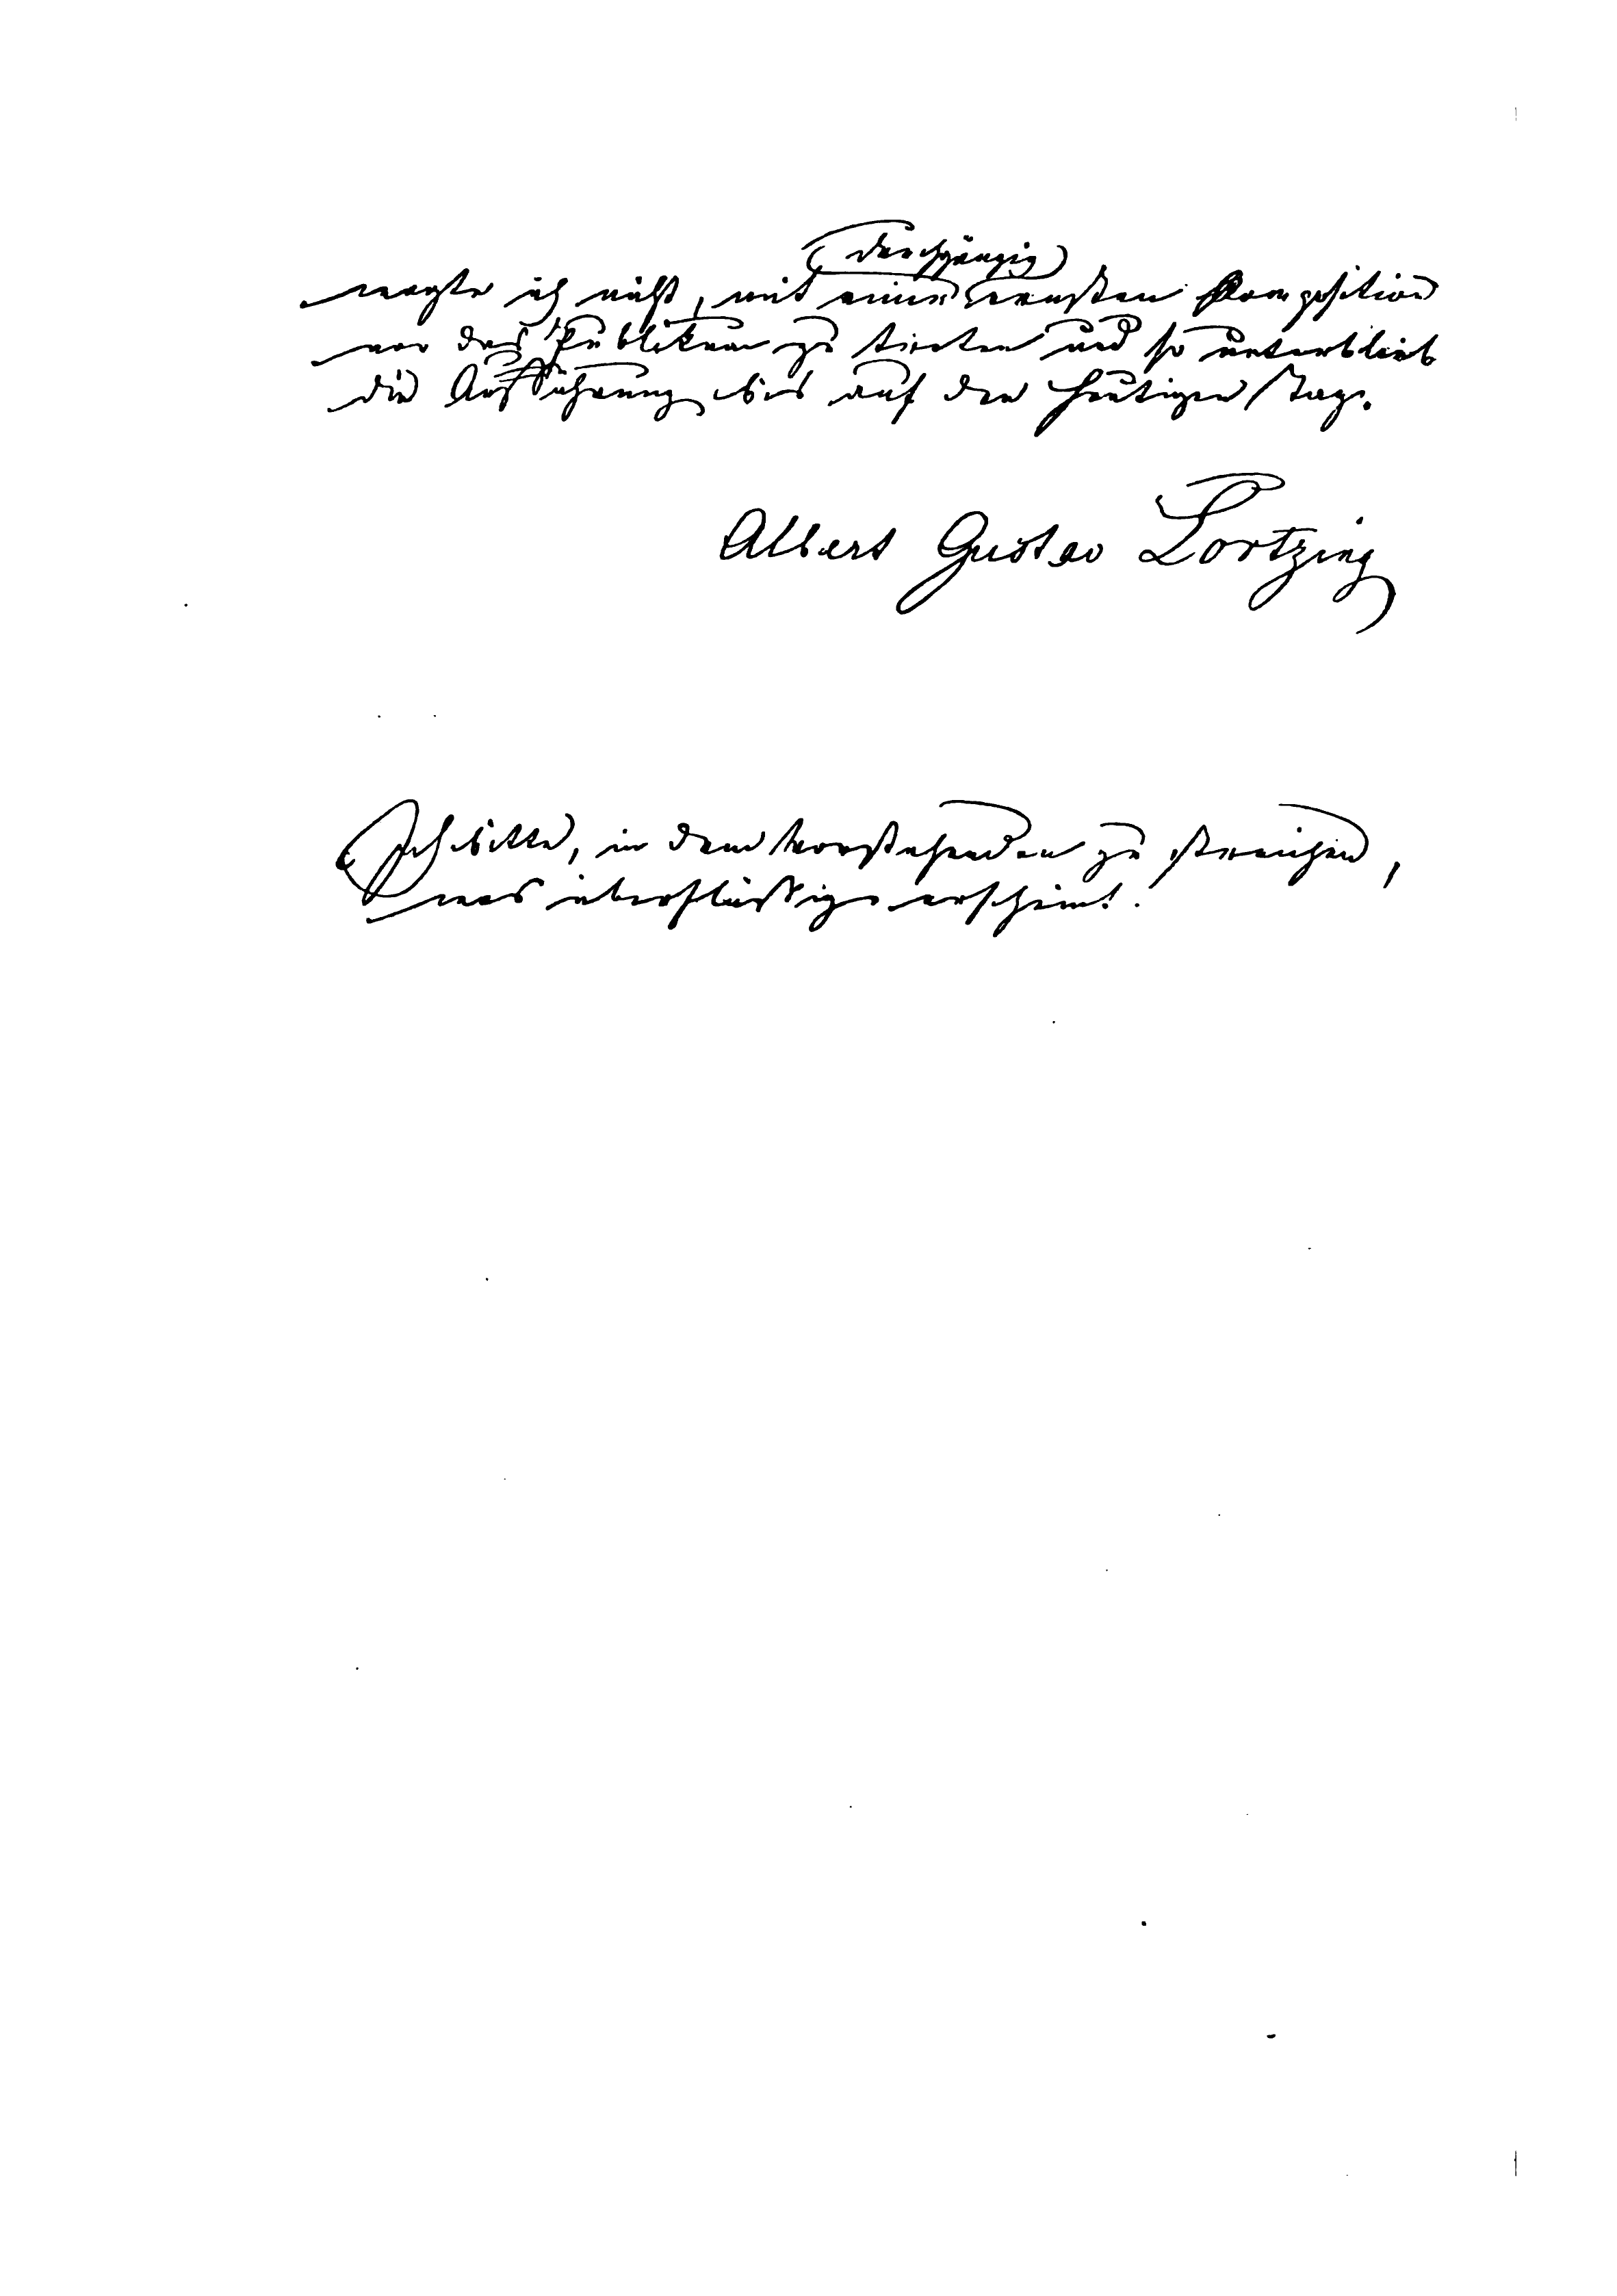 durchgängig
wagte ich nicht, mit einer ernsten Komposition
vor das Publikum zu treten und so unterblieb
die Aufführung bis auf den heutigen Tag.
Albert Gustav Lortzing
Ich bitte, in dem Vorstehenden zu streichen,
was überflüssig erscheint.